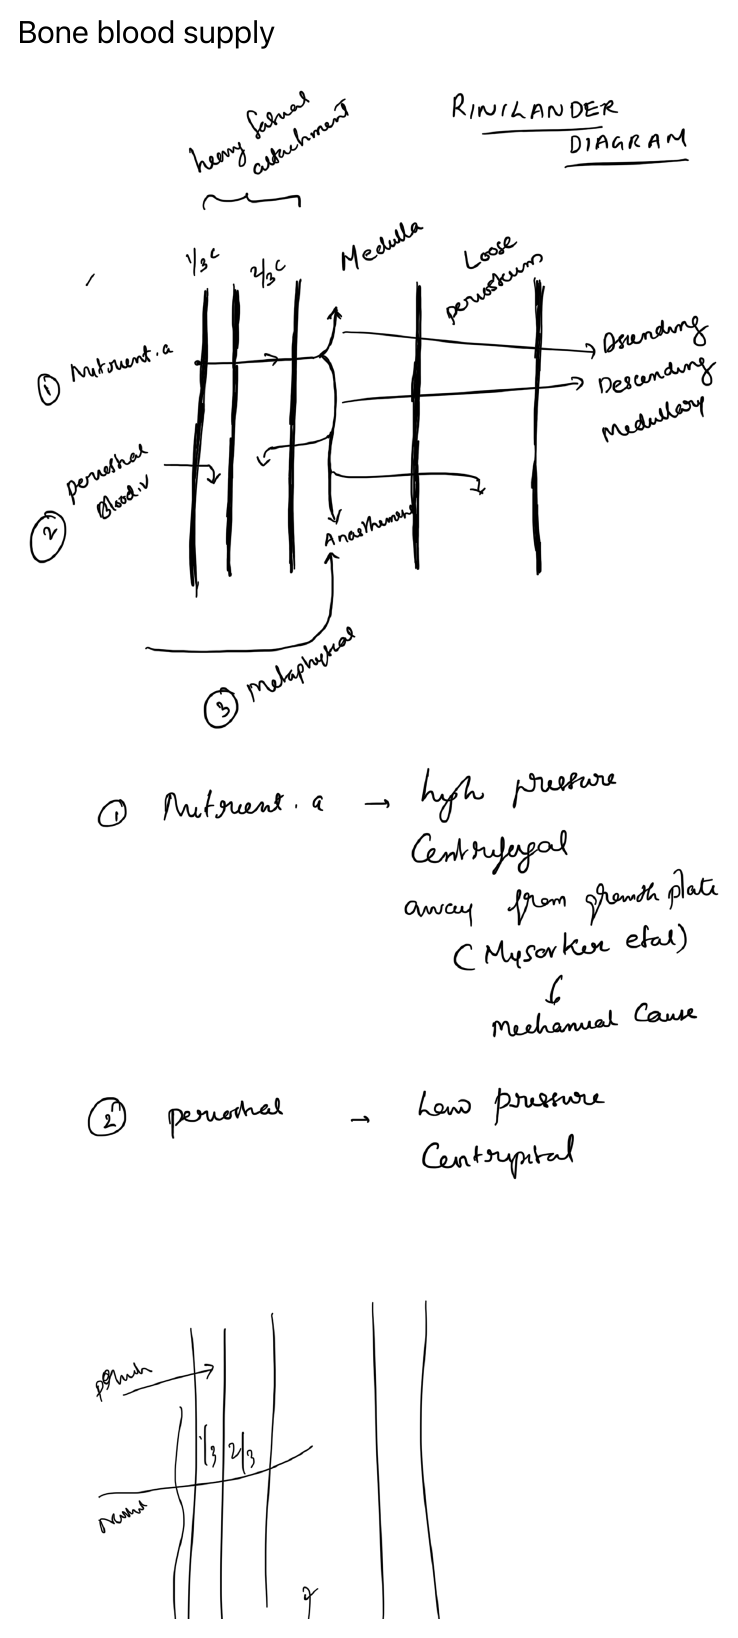 Bone blood supply
RINILANDER
DIAGRAM
heavy fasual
attachment
1/3 c
2/3 c
Medulla
Loose
periosteum
① Nutrient. a
Ascending
Descending
Medullary
② periosteal
Blood.v
③ Metaphyseal
① Nutrient. a → high pressure
Centrifugal
away from growth plate
(Mysorker etal)
Mechanical Cause
② periosteal → Low pressure
Centripital
1/3 2/3